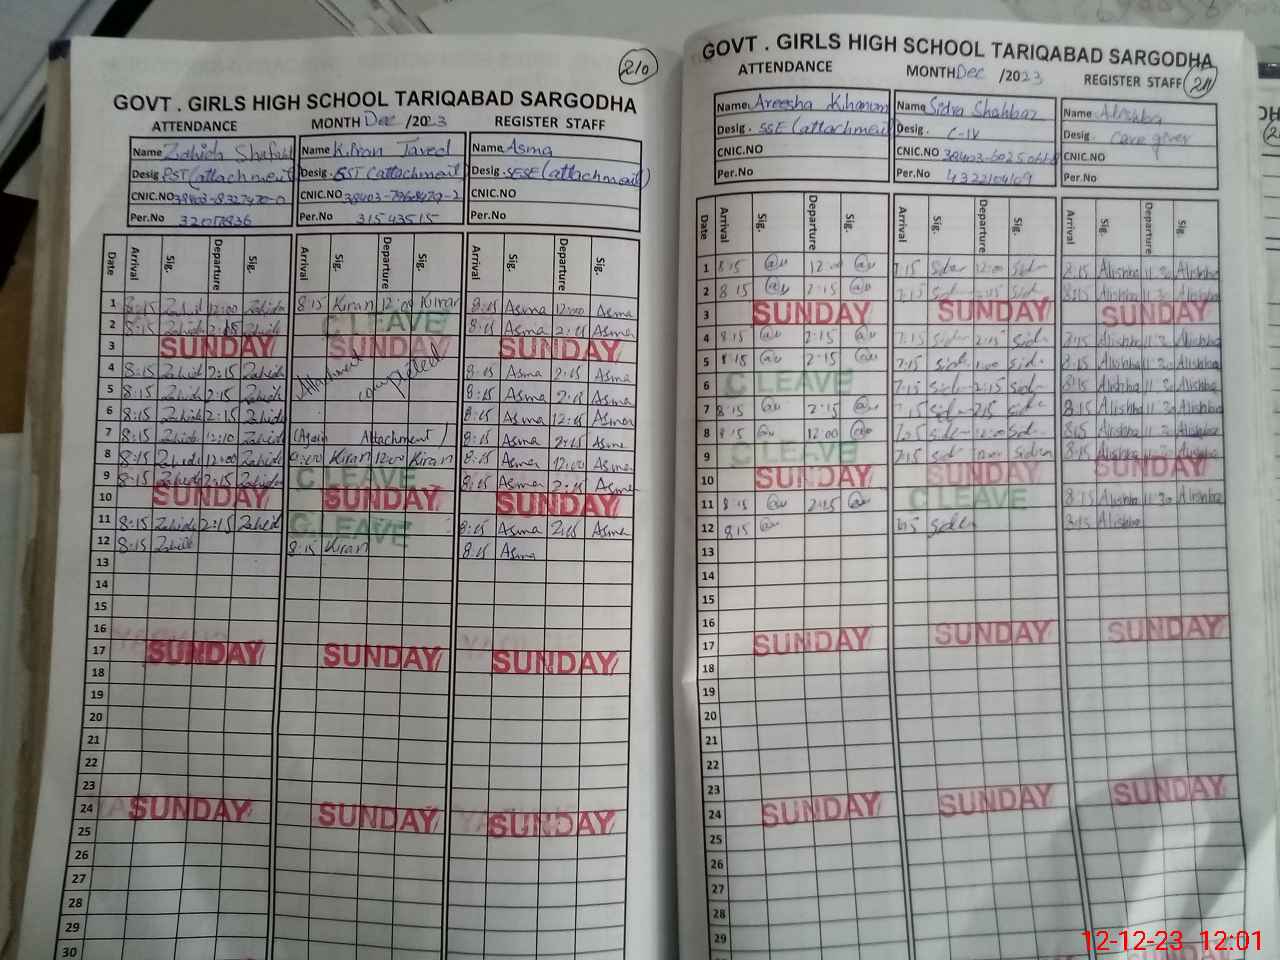 210
GOVT . GIRLS HIGH SCHOOL TARIQABAD SARGODHA
ATTENDANCE MONTH Dec /2023 REGISTER STAFF
Name Zahida Name Kiran Javed Name Asma
Desig. PST (attachment Desig. (attachment) Desig. SESE (attachment)
CNIC.NO CNIC.NO CNIC.NO
Per.No Per.No 31543515 Per.No
Date Arrival Sig. Departure Sig. Arrival Sig. Departure Sig. Arrival Sig. Departure Sig.
1 8:15 Zahida 12:00 Zahida 8:15 Kiran 12:00 Kiran 8:15 Asma 12:00 Asma
2 8:15 Zahida 2:15 Zahida C LEAVE 8:15 Asma 2:15 Asma
3 SUNDAY SUNDAY SUNDAY
4 8:15 Zahida 2:15 Zahida Attachment 8:15 Asma 2:15 Asma
5 8:15 Zahida 2:15 Zahida completed 8:15 Asma 2:15 Asma
6 8:15 Zahida 2:15 Zahida 8:15 Asma 12:15 Asma
7 8:15 Zahida 12:10 Zahida (Again Attachment) 8:15 Asma 2:15 Asma
8 8:15 Zahida 12:00 Zahida Kiran 12:00 Kiran 8:15 Asma 12:00 Asma
9 8:15 Zahida 2:15 Zahida C LEAVE 8:15 Asma 2:15 Asma
10 SUNDAY SUNDAY SUNDAY
11 8:15 Zahida 2:15 Zahida C LEAVE 8:15 Asma 2:15 Asma
12 8:15 Zahida 8:15 Kiran 8:15 Asma
13
14
15
16
17 SUNDAY SUNDAY SUNDAY
18
19
20
21
22
23
24 SUNDAY SUNDAY SUNDAY
25
26
27
28
29
30
211
GOVT . GIRLS HIGH SCHOOL TARIQABAD SARGODHA
ATTENDANCE MONTH Dec /2023 REGISTER STAFF
Name. Areesha Khanum Name Sidra Shahbaz Name Alishba
Desig. SSE (attachment Desig. C-IV Desig. Care giver
CNIC.NO CNIC.NO CNIC.NO
Per.No Per.No Per.No
Date Arrival Sig. Departure Sig. Arrival Sig. Departure Sig. Arrival Sig. Departure Sig.
1 8:15 12:00 7:15 Sidra 12:00 Sidra 8:15 Alishba 11:30 Alishba
2 8:15 2:15 7:15 Sidra 2:15 Sidra 8:15 Alishba 11:30 Alishba
3 SUNDAY SUNDAY SUNDAY
4 8:15 2:15 7:15 Sidra 2:15 Sidra Alishba 11:30 Alishba
5 8:15 2:15 7:15 Sidra Sidra 8:15 Alishba 11:30 Alishba
6 C LEAVE 7:15 Sidra 2:15 Sidra 8:15 Alishba 11:30 Alishba
7 8:15 2:15 7:15 Sidra 2:15 Sidra 8:15 Alishba 11:30 Alishba
8 8:15 12:00 Sidra 12:00 Sidra 8:15 Alishba 11:30 Alishba
9 C LEAVE 7:15 Sidra Sidra 8:15 Alishba 11:30 Alishba
10 SUNDAY SUNDAY SUNDAY
11 8:15 2:15 C LEAVE 8:15 Alishba 11:30 Alishba
12 8:15 Sidra Alishba
13
14
15
16
17 SUNDAY SUNDAY SUNDAY
18
19
20
21
22
23
24 SUNDAY SUNDAY SUNDAY
25
26
27
28
29
12-12-23 12:01